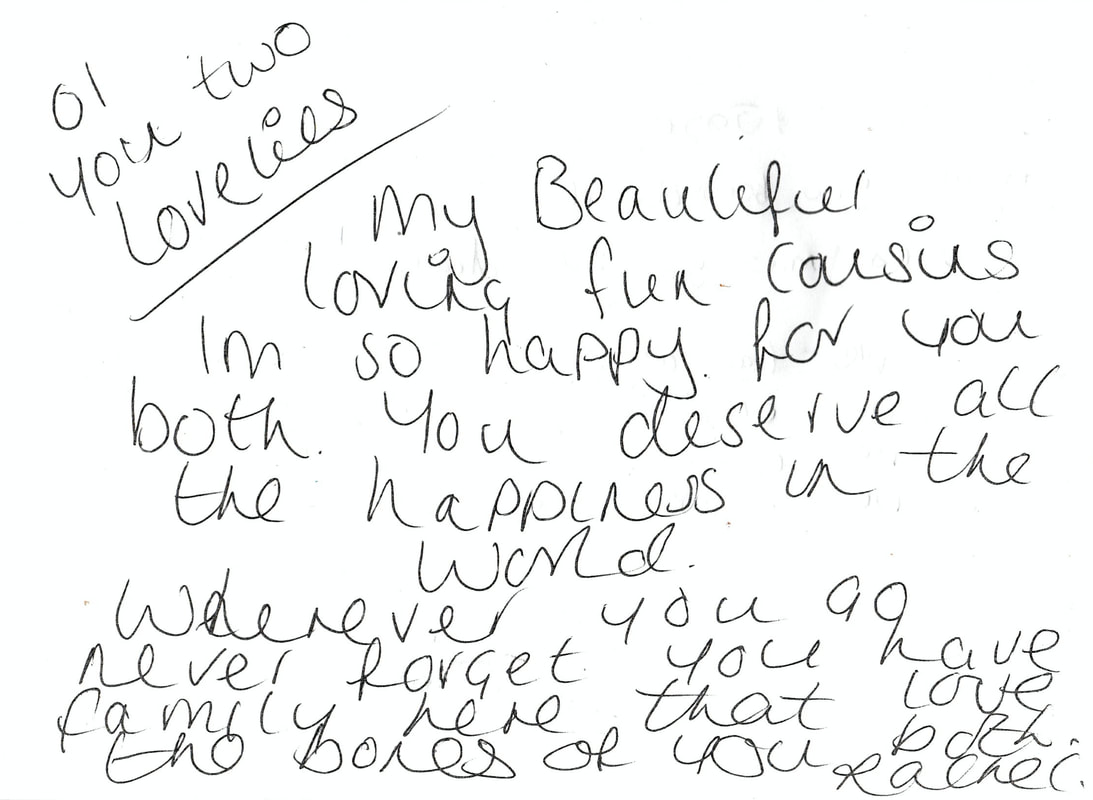 OI
you two
Lovelies
My Beautiful
loving fun cousins
Im so happy for you
both. You deserve all
the happiness in the
World.
Wherever you go
never forget you have
family here that love
the bones of you both.
Rachel.